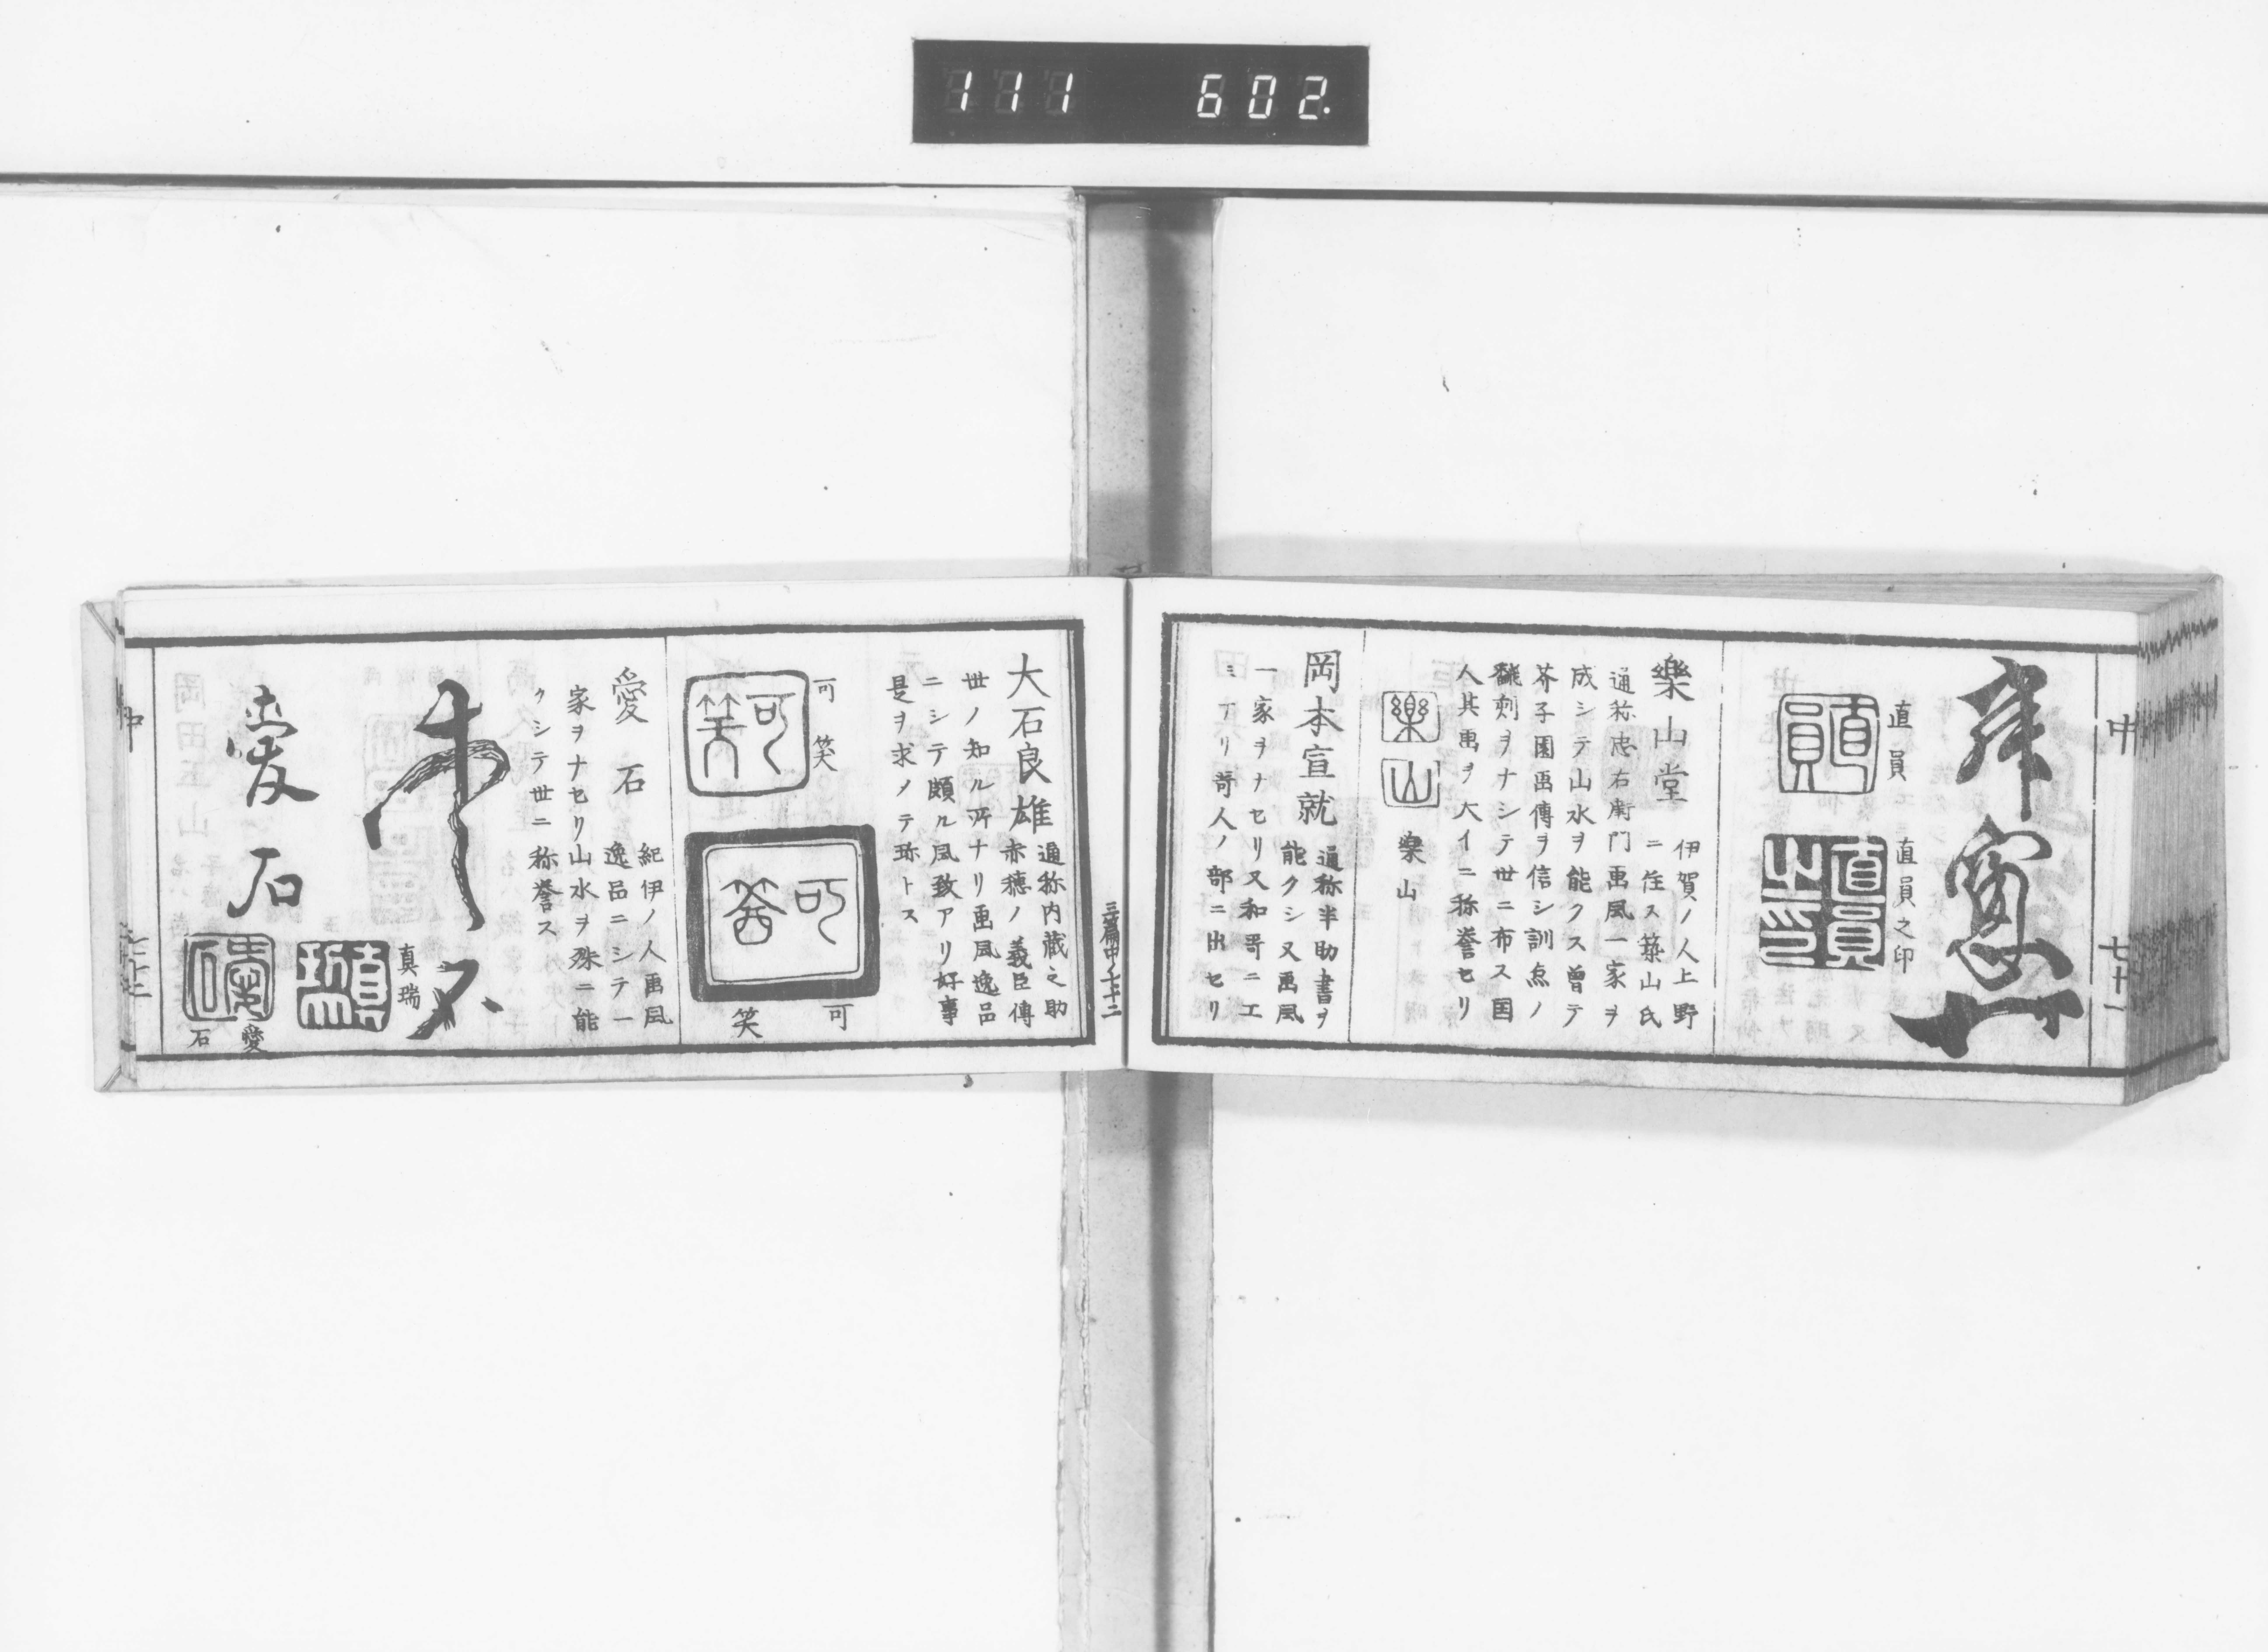 111 602.
中
七十一
直員
直員之印
樂山堂
伊賀ノ人上野
ニ住ス築山氏
通称忠右衛門画風一家ヲ
成シテ山水ヲ能クス曽テ
芥子園画傳ヲ信シ訓点ノ
飜刻ヲナシテ世ニ布ス国
人其画ヲ大イニ称誉セリ
樂山
樂山
岡本宣就
通称半助書ヲ
能クシ又画風
一家ヲナセリ又和哥ニ工
ミナリ哥人ノ部ニ出セリ
三篇中ノ七十二
大石良雄
通称内蔵之助
赤穂ノ義臣傳
世ノ知ル所ナリ画風逸品
ニシテ頗ル風致アリ好事
是ヲ求メテ珎トス
可笑
可笑
可笑
可笑
愛石
紀伊ノ人画風
逸品ニシテ一
家ヲナセリ山水ヲ殊ニ能
クシテ世ニ称誉ス
真瑞
愛石
愛石
中
七十二